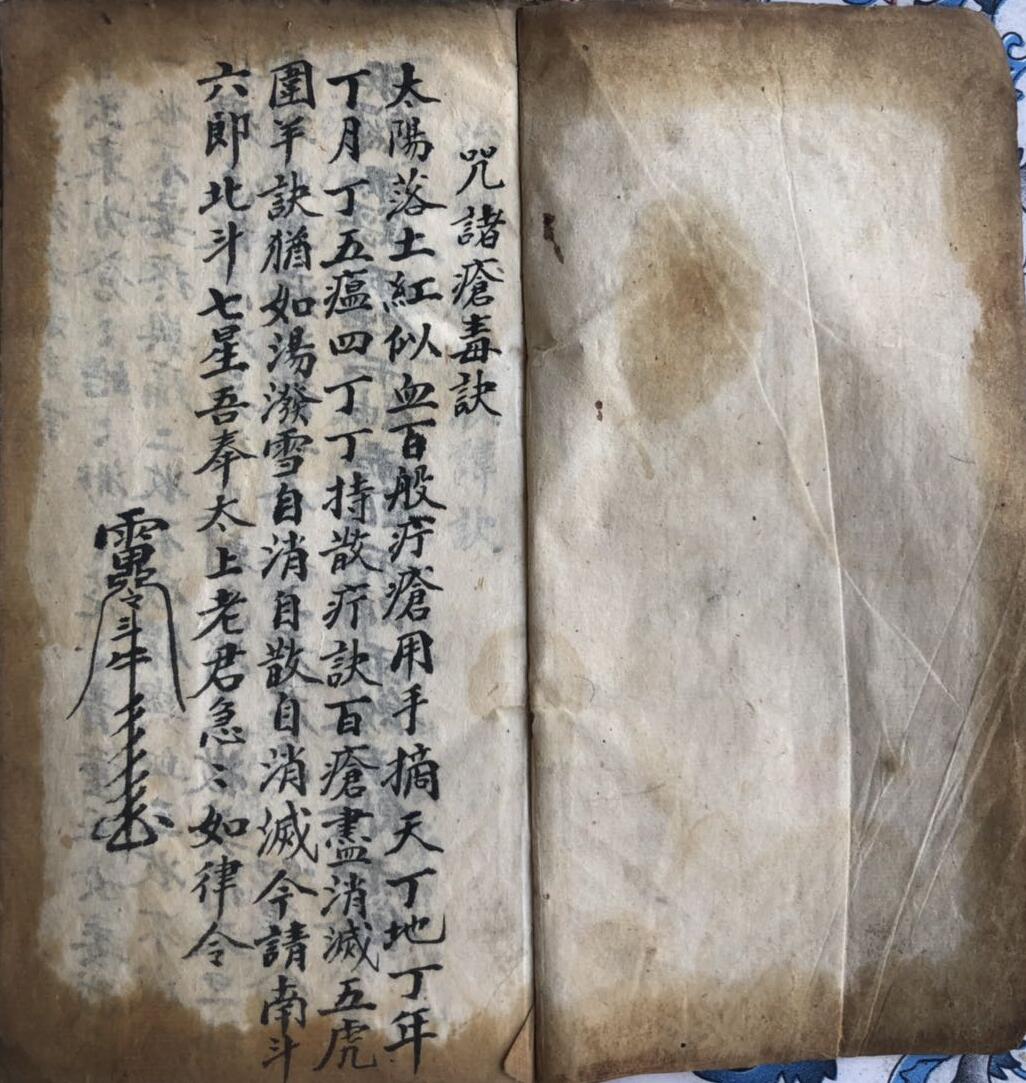 咒諸瘡毒訣
太陽落土紅似血百般疔瘡用手摘天丁地丁年
丁月丁五瘟四丁丁持散疔訣百瘡盡消滅五虎
圍羊訣猶如湯潑雪自消自散自消滅今請南斗
六郎北斗七星吾奉太上老君急〻如律令
斗牛